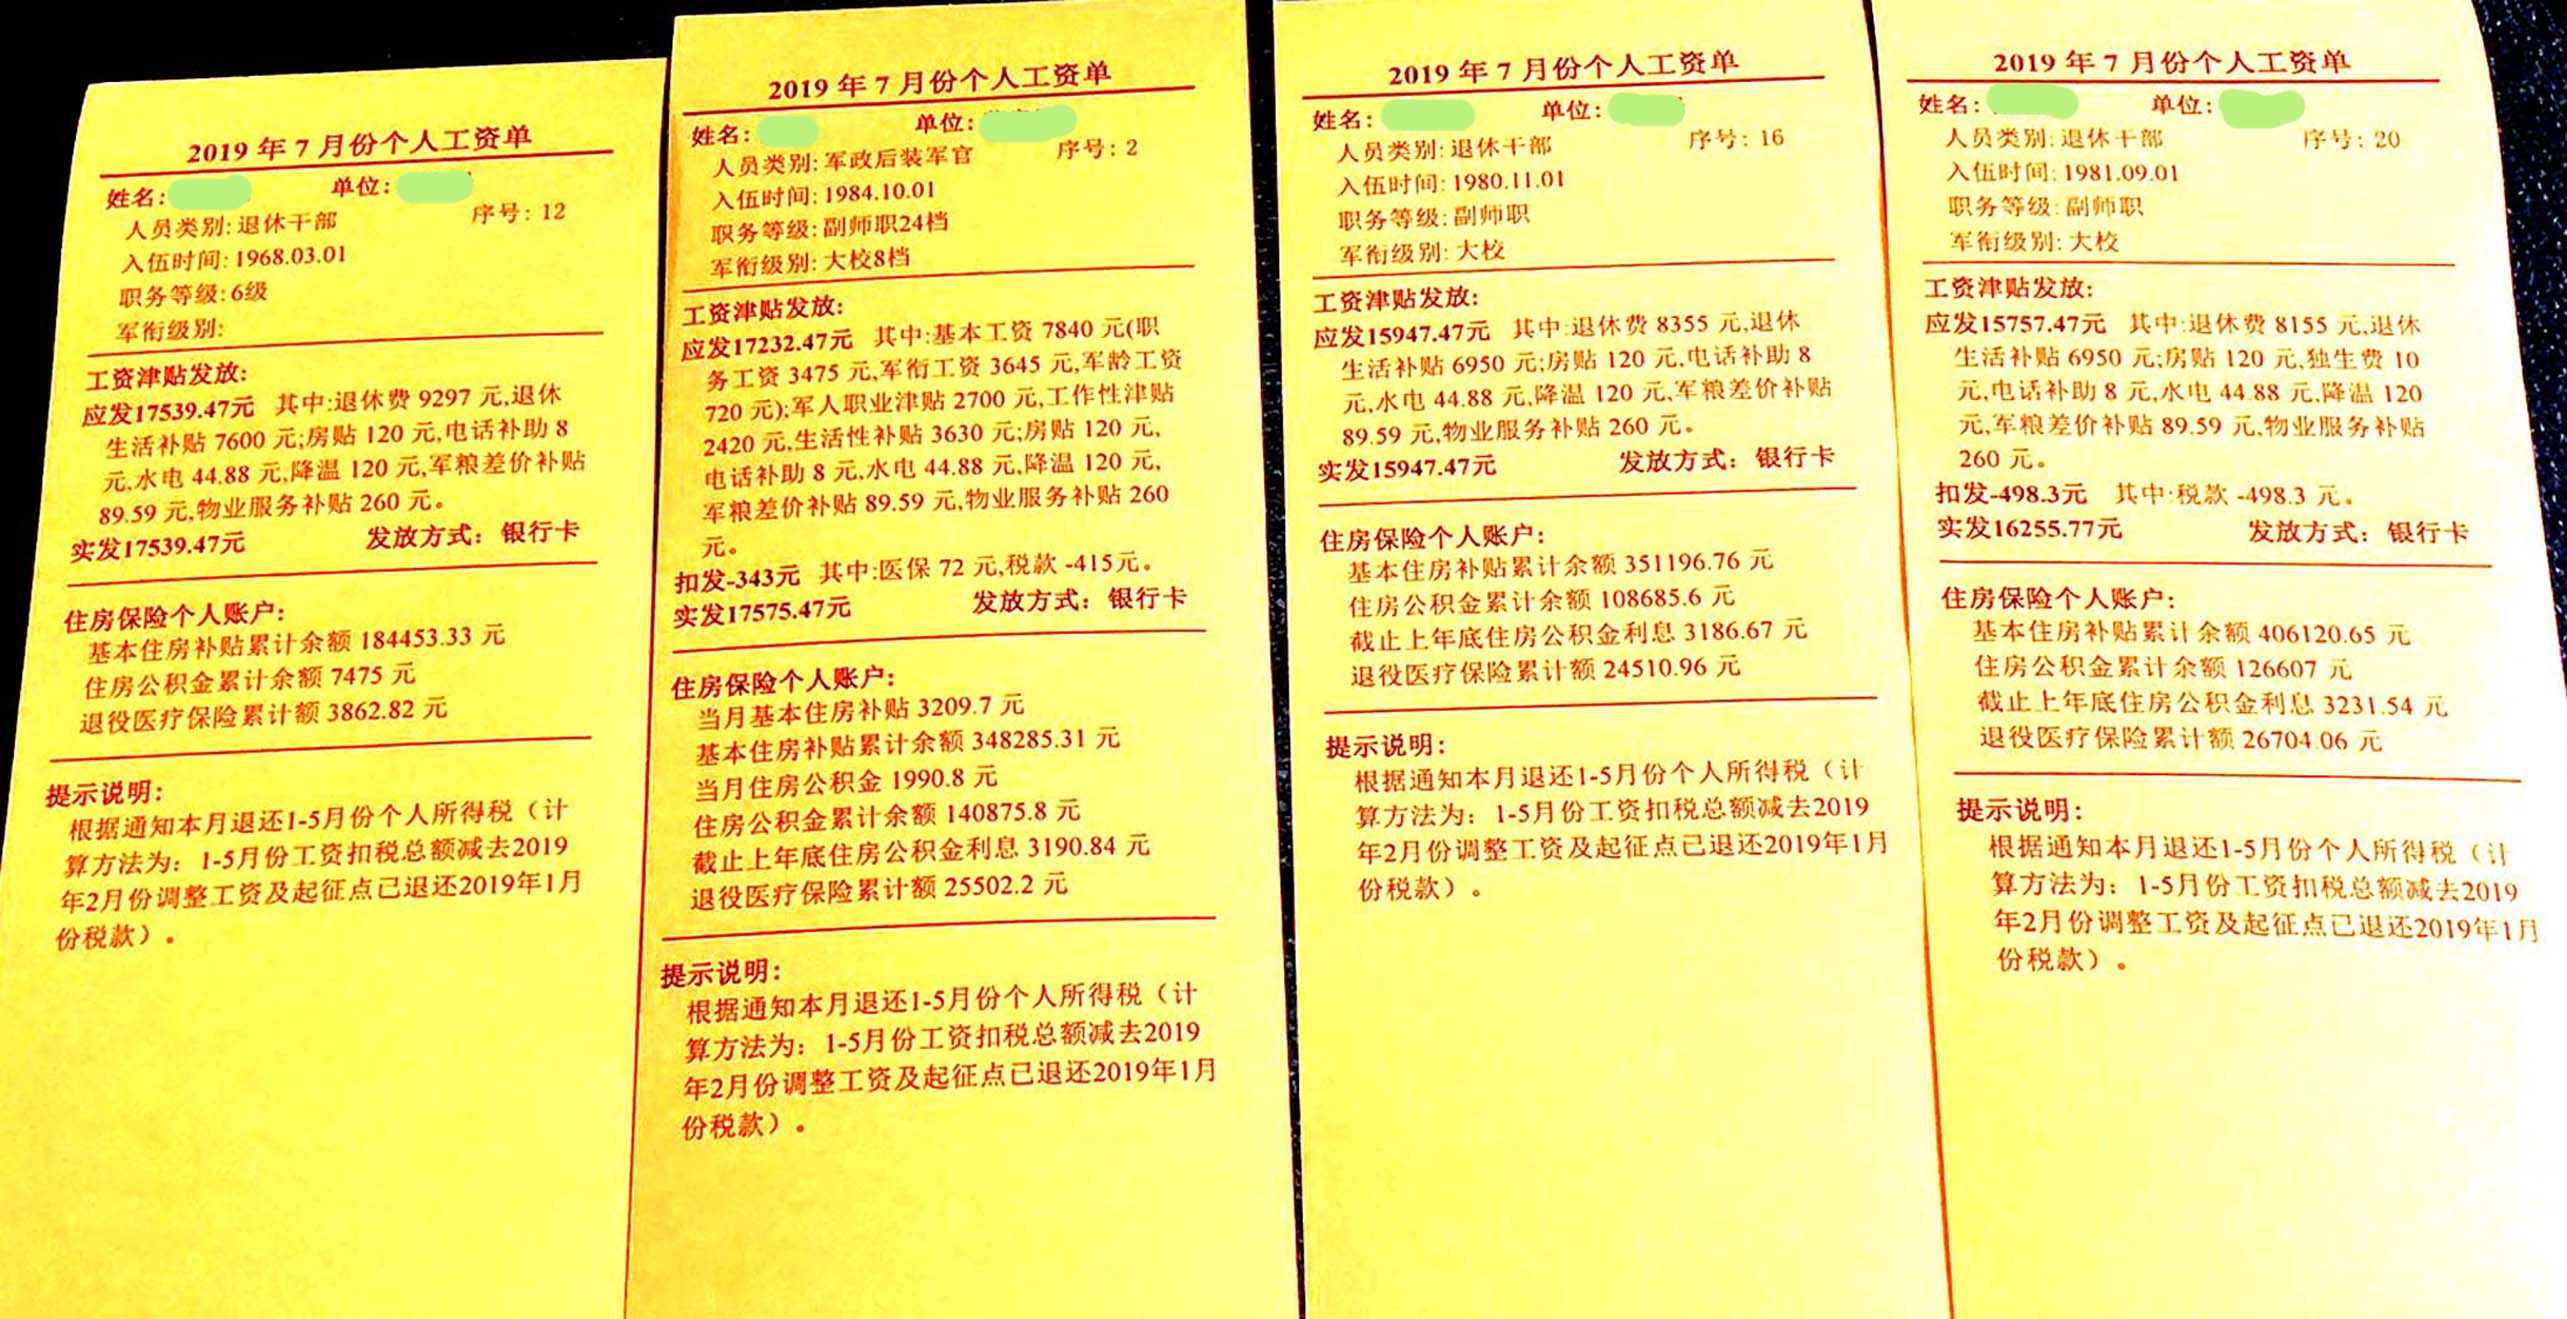 2019 年 7 月份个人工资单
姓名: 单位:
人员类别: 退休干部 序号: 12
入伍时间: 1968.03.01
职务等级: 6级
军衔级别:
工资津贴发放:
应发17539.47元 其中:退休费 9297 元,退休
生活补贴 7600 元;房贴 120 元,电话补助 8
元,水电 44.88 元,降温 120 元,军粮差价补贴
89.59 元,物业服务补贴 260 元。
实发17539.47元 发放方式: 银行卡
住房保险个人账户:
基本住房补贴累计余额 184453.33 元
住房公积金累计余额 7475 元
退役医疗保险累计额 3862.82 元
提示说明:
根据通知本月退还1-5月份个人所得税（计
算方法为: 1-5月份工资扣税总额减去2019
年2月份调整工资及起征点已退还2019年1月
份税款）。
2019 年 7 月份个人工资单
姓名: 单位:
人员类别: 军政后装军官 序号: 2
入伍时间: 1984.10.01
职务等级: 副师职24档
军衔级别: 大校8档
工资津贴发放:
应发17232.47元 其中:基本工资 7840 元(职
务工资 3475 元,军衔工资 3645 元,军龄工资
720 元);军人职业津贴 2700 元,工作性津贴
2420 元,生活性补贴 3630 元;房贴 120 元,
电话补助 8 元,水电 44.88 元,降温 120 元,
军粮差价补贴 89.59 元,物业服务补贴 260
元。
扣发-343元 其中:医保 72 元,税款 -415元。
实发17575.47元 发放方式: 银行卡
住房保险个人账户:
当月基本住房补贴 3209.7 元
基本住房补贴累计余额 348285.31 元
当月住房公积金 1990.8 元
住房公积金累计余额 140875.8 元
截止上年底住房公积金利息 3190.84 元
退役医疗保险累计额 25502.2 元
提示说明:
根据通知本月退还1-5月份个人所得税（计
算方法为: 1-5月份工资扣税总额减去2019
年2月份调整工资及起征点已退还2019年1月
份税款）。
2019 年 7 月份个人工资单
姓名: 单位:
人员类别: 退休干部 序号: 16
入伍时间: 1980.11.01
职务等级: 副师职
军衔级别: 大校
工资津贴发放:
应发15947.47元 其中:退休费 8355 元,退休
生活补贴 6950 元;房贴 120 元,电话补助 8
元,水电 44.88 元,降温 120 元,军粮差价补贴
89.59 元,物业服务补贴 260 元。
实发15947.47元 发放方式: 银行卡
住房保险个人账户:
基本住房补贴累计余额 351196.76 元
住房公积金累计余额 108685.6 元
截止上年底住房公积金利息 3186.67 元
退役医疗保险累计额 24510.96 元
提示说明:
根据通知本月退还1-5月份个人所得税（计
算方法为: 1-5月份工资扣税总额减去2019
年2月份调整工资及起征点已退还2019年1月
份税款）。
2019 年 7 月份个人工资单
姓名: 单位:
人员类别: 退休干部 序号: 20
入伍时间: 1981.09.01
职务等级: 副师职
军衔级别: 大校
工资津贴发放:
应发15757.47元 其中:退休费 8155 元,退休
生活补贴 6950 元;房贴 120 元,独生费 10
元,电话补助 8 元,水电 44.88 元,降温 120
元,军粮差价补贴 89.59 元,物业服务补贴
260 元。
扣发-498.3元 其中:税款 -498.3 元。
实发16255.77元 发放方式: 银行卡
住房保险个人账户:
基本住房补贴累计余额 406120.65 元
住房公积金累计余额 126607 元
截止上年底住房公积金利息 3231.54 元
退役医疗保险累计额 26704.06 元
提示说明:
根据通知本月退还1-5月份个人所得税（计
算方法为: 1-5月份工资扣税总额减去2019
年2月份调整工资及起征点已退还2019年1月
份税款）。